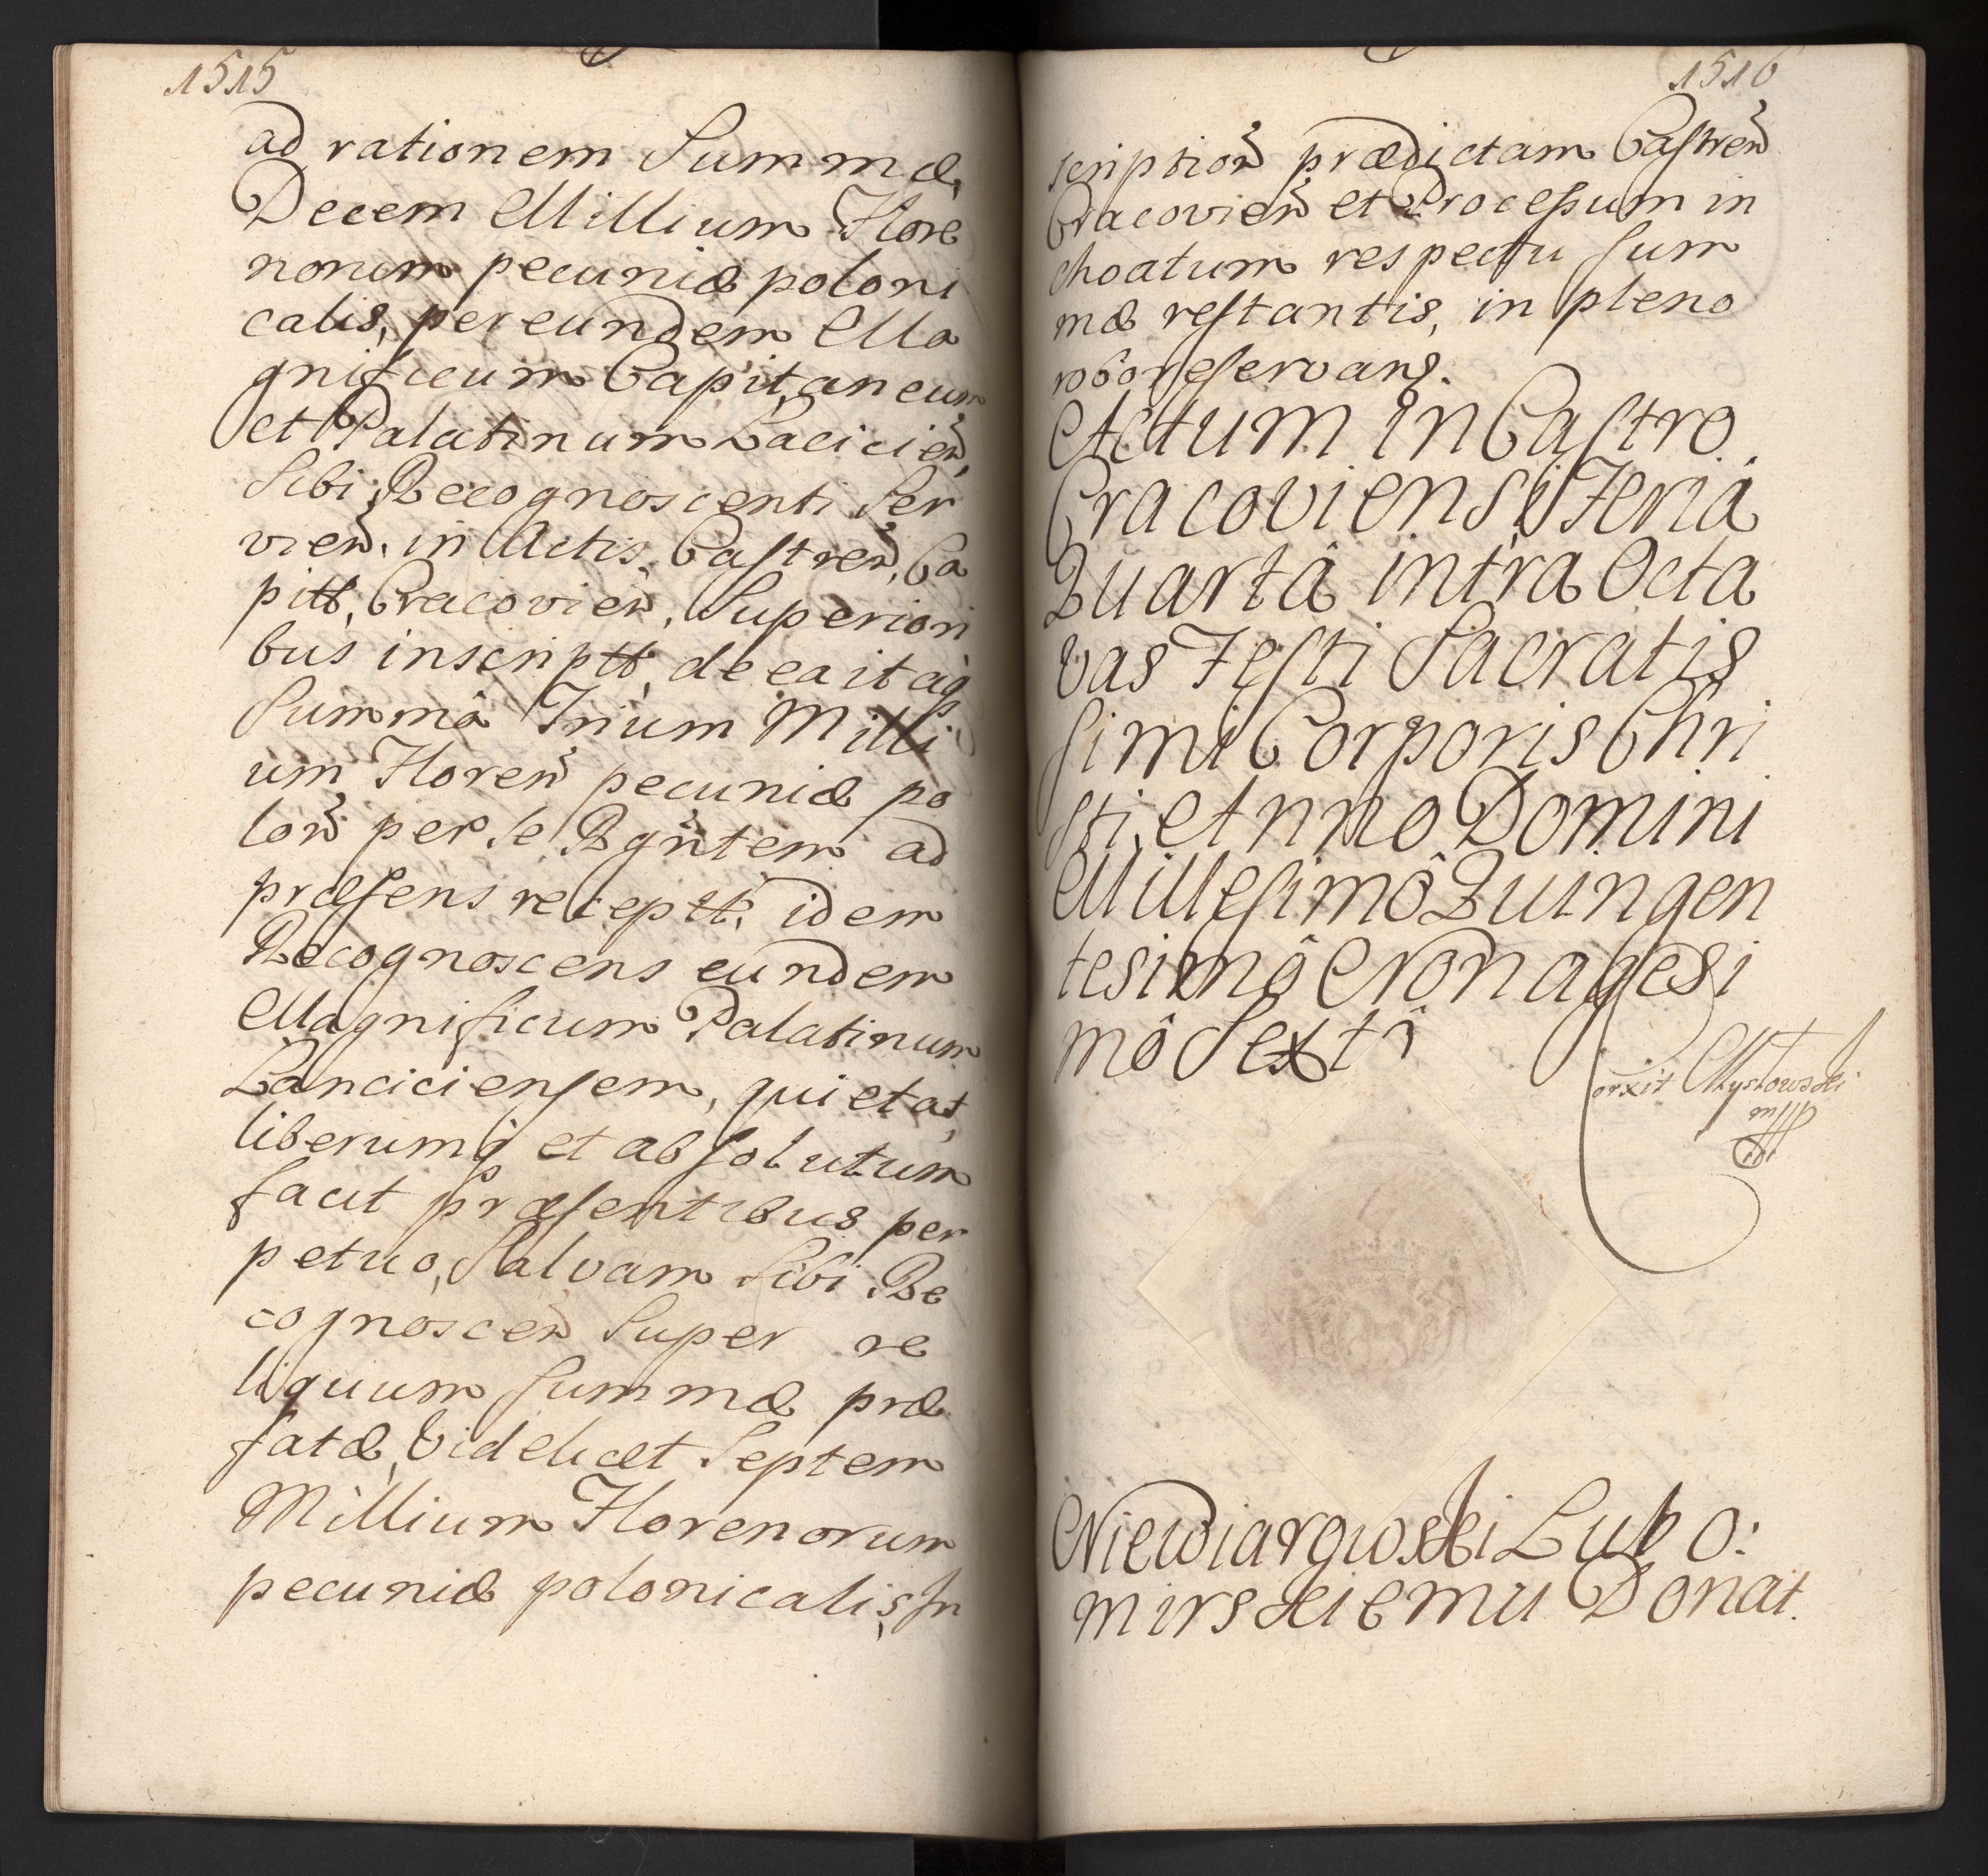 1515
ad rationem Summæ
Decem Millium Flore
norum pecuniæ poloni
calis, per eundem Ma
gnificum Capitaneum
et Palatinum Lacicień,
Sibi Recognoscenti Ser
vień, in Actis Castreń, Ca
pitt, Cracovień, Superiori
bus inscriptt, de ea itaq
Summâ Trium Milli
um Floreń pecuniæ po
loń per se Rgńtem ad
præsens receptt, idem
Recognoscens eundem
Magnificum Palatinum
Lanciciensem, quietat,
liberumq et absolutum
facit præsentibus per
petuo, Salvam Sibi Re
cognosceń Super re
liquum summæ præ
fatæ, Videlicet Septem
Millium Florenorum
pecuniæ polonicalis, In
1516
scriptioń prædictam Castreń
Cracovień et Processum in
choatum respectu sum
mæ restantis, in pleno
robore servans.
Actum in Castro
Cracoviensi Feriâ
Quartâ intra Octa
vas Festi Sacratis
simi Corporis Chri
sti, Anno Domini
Millesimô Quingen
tesimô Nonagesi
mô Sextô
Niewiarowski Lubo:
mirskiemu Donat.